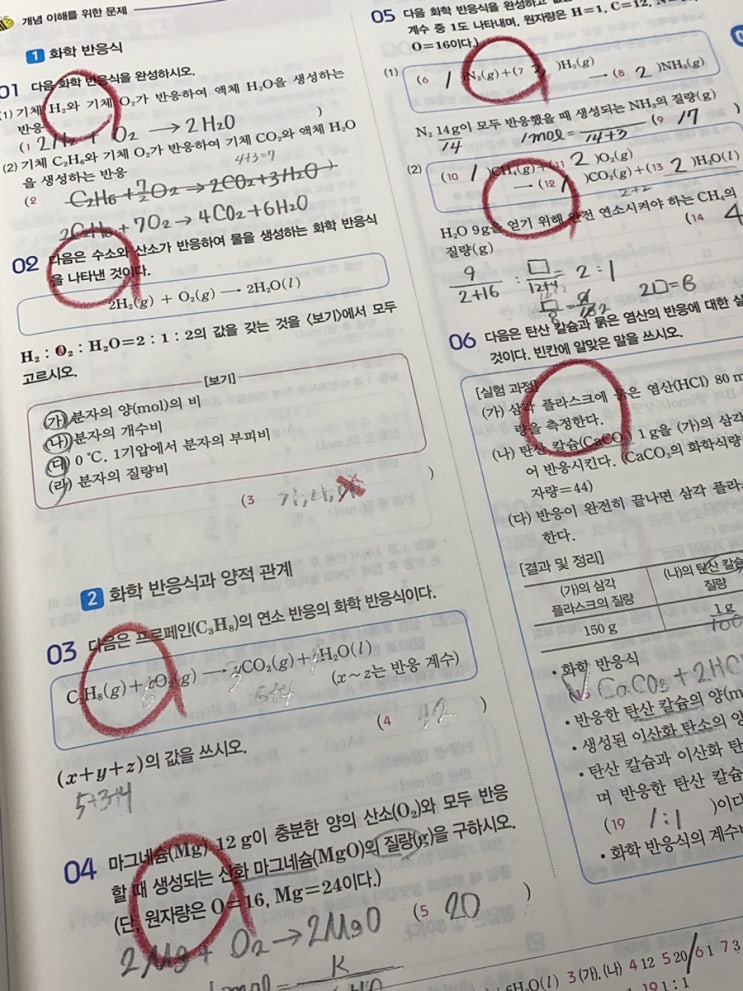 개념 이해를 위한 문제
1 화학 반응식
01 다음 화학 반응식을 완성하시오.
(1) 기체 H₂와 기체 O₂가 반응하여 액체 H₂O를 생성하는
반응
(1 2H₂ + O₂ → 2H₂O )
(2) 기체 C₂H₆와 기체 O₂가 반응하여 기체 CO₂와 액체 H₂O
을 생성하는 반응
4+3=7
(2 C₂H₆ + 7/2O₂ → 2CO₂ + 3H₂O )
2C₂H₆ + 7O₂ → 4CO₂ + 6H₂O
02 다음은 수소와 산소가 반응하여 물을 생성하는 화학 반응식
을 나타낸 것이다.
2H₂(g) + O₂(g) → 2H₂O(l)
H₂ : O₂ : H₂O=2 : 1 : 2의 값을 갖는 것을 <보기>에서 모두
고르시오.
[보기]
(가) 분자의 양(mol)의 비
(나) 분자의 개수비
(다) 0 ℃, 1기압에서 분자의 부피비
(라) 분자의 질량비
(3 가, 나, )
2 화학 반응식과 양적 관계
03 다음은 프로페인(C₃H₈)의 연소 반응의 화학 반응식이다.
C₃H₈(g) + O₂(g) → CO₂(g) + H₂O(l)
(x~z는 반응 계수)
(4 )
(x+y+z)의 값을 쓰시오.
5+3+4
04 마그네슘(Mg) 12 g이 충분한 양의 산소(O₂)와 모두 반응
할 때 생성되는 산화 마그네슘(MgO)의 질량(g)을 구하시오.
(단, 원자량은 O=16, Mg=24이다.)
(5 20 )
2Mg + O₂ → 2MgO
05 다음 화학 반응식을 완성하고
계수 중 1도 나타내며, 원자량은 H=1, C=12,
O=16이다.)
(1) (6 1 )N₂(g)+(7 3 )H₂(g)
→ (8 2 )NH₃(g)
N₂ 14g이 모두 반응했을 때 생성되는 NH₃의 질량(g)
(9 17 )
(2) (10 1 )CH₄(g)+(11 2 )O₂(g)
→ (12 1 )CO₂(g)+(13 2 )H₂O(l)
2+2
H₂O 9g을 얻기 위해 완전 연소시켜야 하는 CH₄의
질량(g)
(14 4
9/2+16 : □/12+4 = 2 : 1
2□=8
06 다음은 탄산 칼슘과 묽은 염산의 반응에 대한 실
것이다. 빈칸에 알맞은 말을 쓰시오.
[실험 과정]
(가) 삼각 플라스크에 묽은 염산(HCl) 80 m
량을 측정한다.
(나) 탄산 칼슘(CaCO₃) 1 g을 (가)의 삼각
어 반응시킨다. (CaCO₃의 화학식량
자량=44)
(다) 반응이 완전히 끝나면 삼각 플라
한다.
[결과 및 정리]
(가)의 삼각
플라스크의 질량
(나)의 탄산 칼슘
질량
150 g
1 g
100
• 화학 반응식
CaCO₃ + 2HC
• 반응한 탄산 칼슘의 양(m
• 생성된 이산화 탄소의 양
• 탄산 칼슘과 이산화 탄
며 반응한 탄산 칼슘
(19 1:1 )이다
• 화학 반응식의 계수비
6H₂O(l) 3 (가), (나) 4 12 5 20 6 1 7 3
19 1 : 1